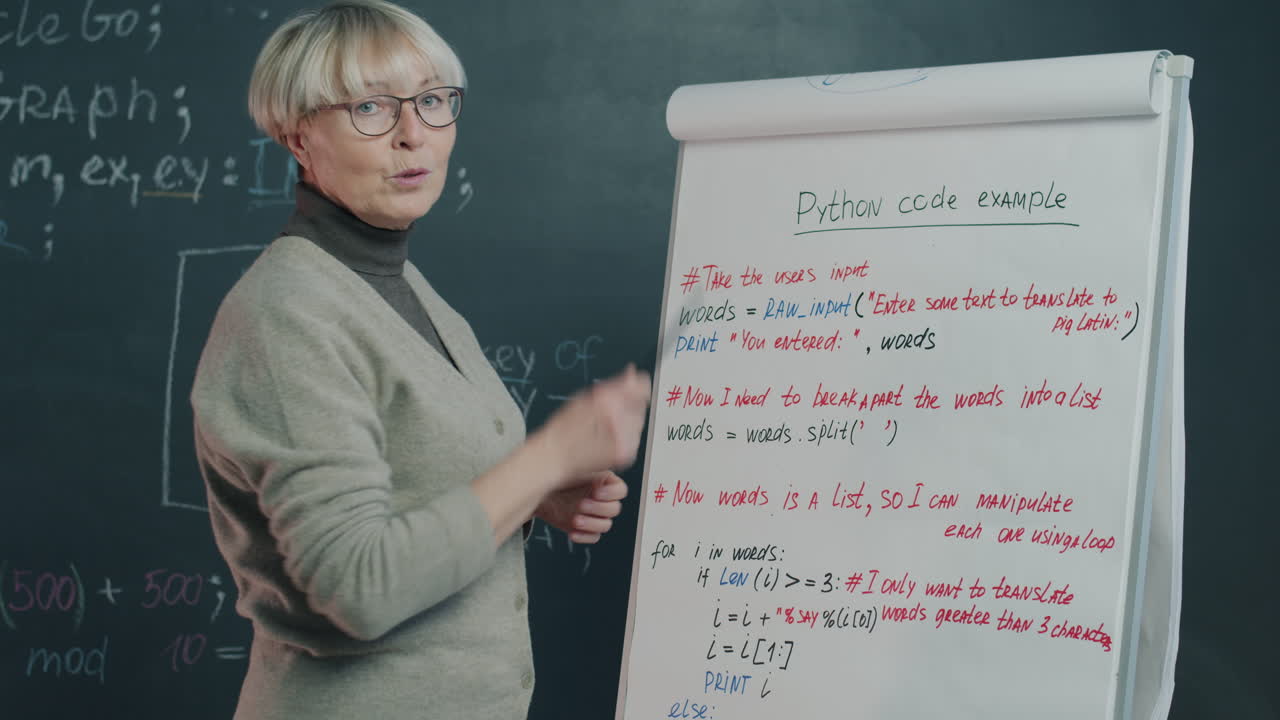 cleGo;
GRAPh;
m, ex, ey:
;
key of
(500) + 500;
mod 10 =
Python code example
# Take the users input
words = RAW_input("Enter some text to translate to
pig Latin:")
print "You entered: ", words
# Now I need to break apart the words into a list
words = words.split(' ')
# Now words is a list, so I can manipulate
each one using a loop
for i in words:
if Len (i) >= 3: # I only want to translate
i = i + "%SAY %(i[0]) words greater than 3 characters
i = i[1:]
PRINT i
else: